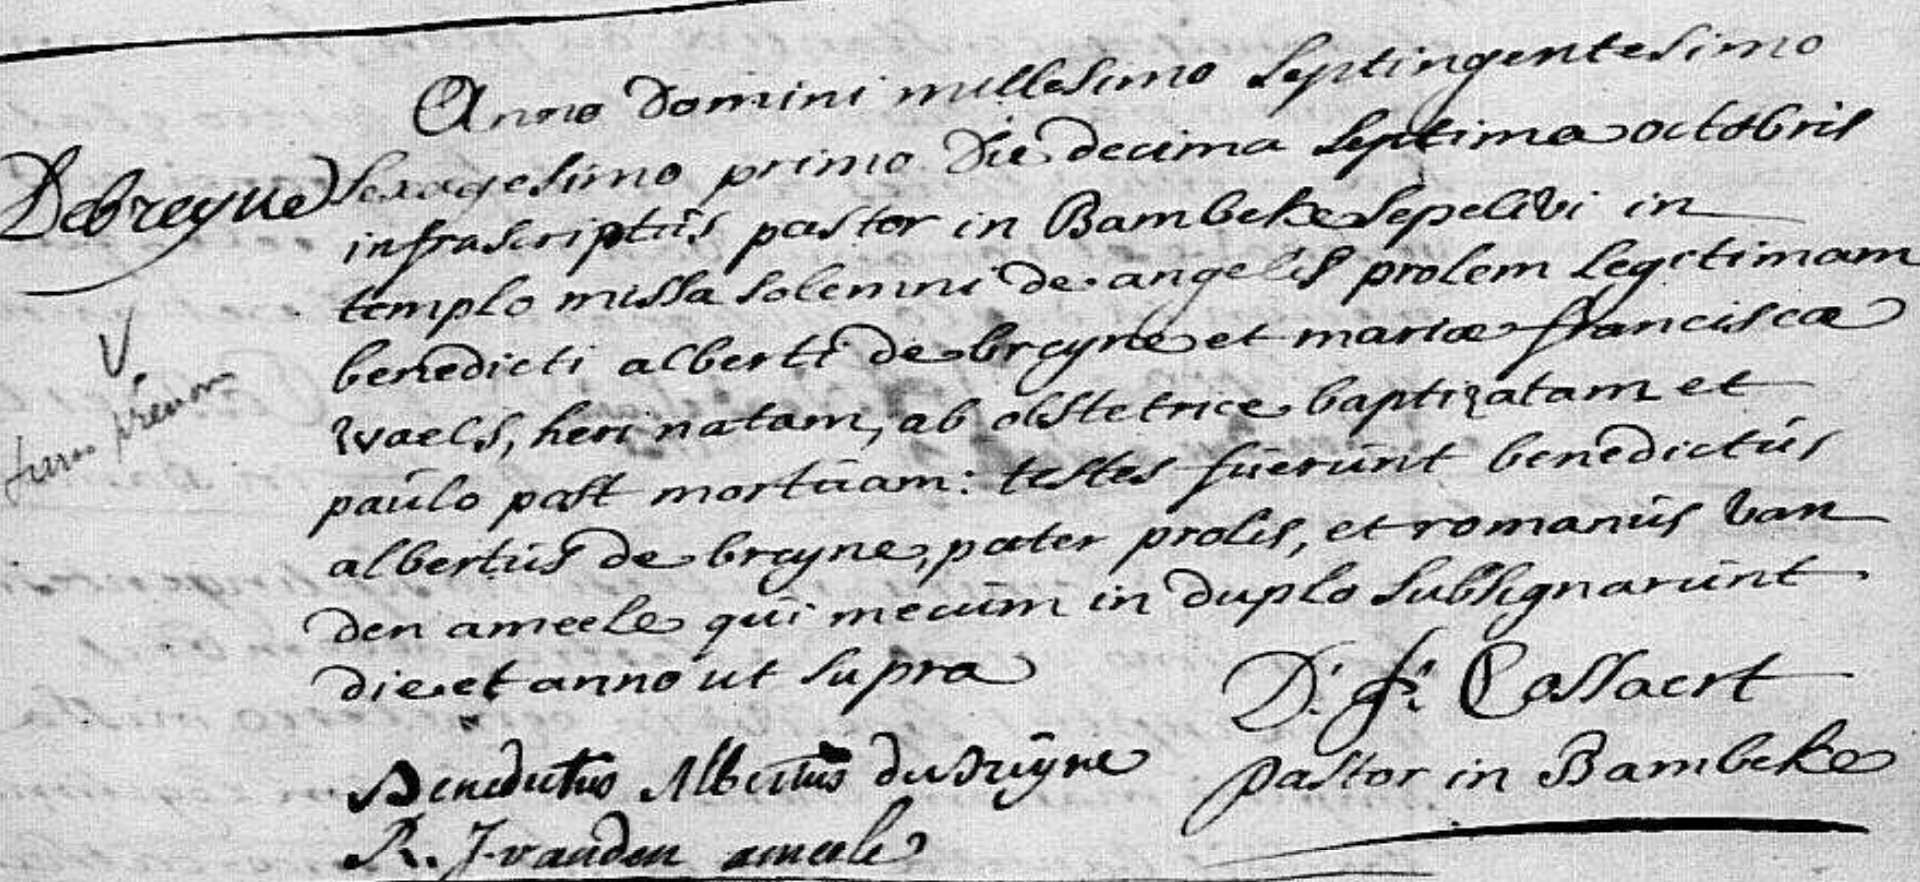 Anno Domini millesimo septingentesimo
Debreyne
sexagesimo primo Die decima septima octobris
infrascriptus pastor in Bambeke sepelivi in
templo missa solemni de angelis prolem legitimam
benedicti alberti de breyne et mariæ franciscæ
waels, heri natam, ab obstetrice baptizatam et
paulo post mortuam: testes fuerunt benedictus
albertus de breyne, pater prolis, et romanus van
den ameele qui mecum in duplo subsignarunt
die et anno ut supra
sans prénom
D. f. Cossaert
pastor in Bambeke
Benedictus Albertus
R. J. vanden ameele